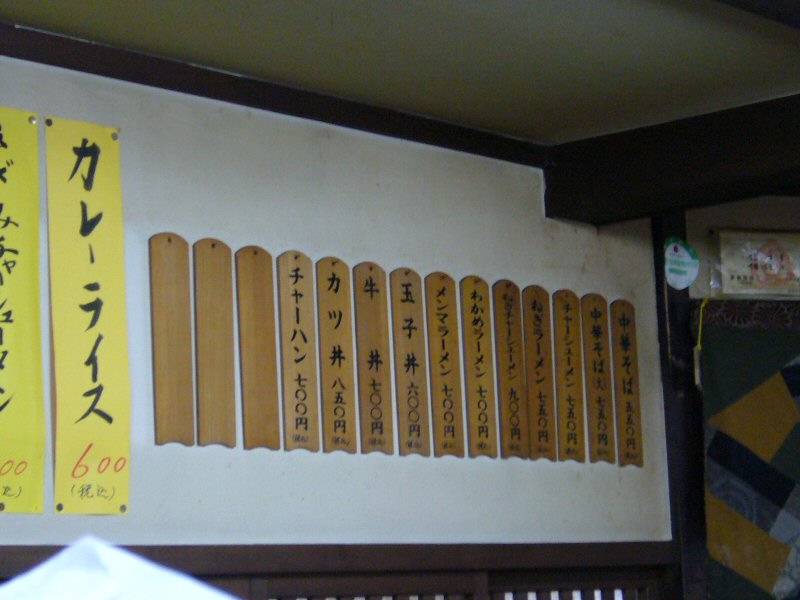 中華そば 五五〇円
中華そば(大) 七五〇円
チャーシューメン 七五〇円
ねぎラーメン 七五〇円
ねぎチャーシューメン 九〇〇円
わかめラーメン 七〇〇円
メンマラーメン 七〇〇円
玉子丼 六〇〇円 (税込)
牛丼 七〇〇円 (税込)
カツ丼 八五〇円 (税込)
チャーハン 七〇〇円 (税込)
カレーライス
600
(税込)